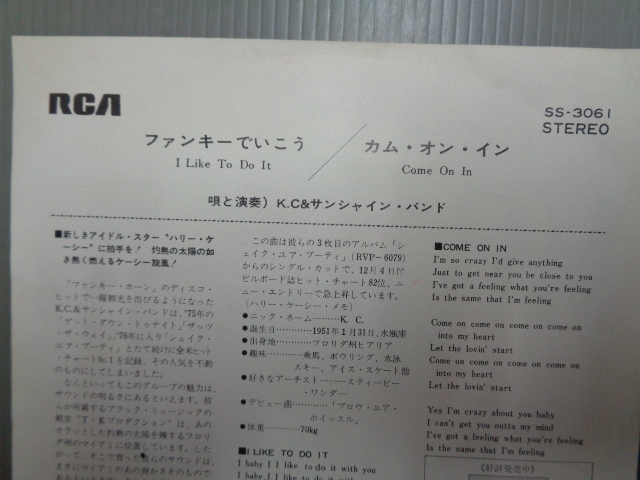 RCA
SS-3061
STEREO
ファンキーでいこう
I Like To Do It
カム・オン・イン
Come On In
唄と演奏) K.C&サンシャイン・バンド
■新しきアイドル・スター“ハリー・ケ
ーシー”に拍手を! 灼熱の太陽の如
き熱く燃えるケーシー旋風!
「ファンキー・ホーン」のディスコ・
ヒットで一躍脚光を浴びるようになった
K.C.&サンシャイン・バンドは、'75年の
「ゲット・ダウン・トゥナイト」「ザッツ・
ザ・ウェイ」、'76年に入り「シェイク・
ユア・ブーティ」とたて続けに全米ヒット
・チャートNo.1を記録、その人気を不動
のものにしてしまいました。
なんといってもこのグループの魅力は、
サウンドの明るさにあるといえます。彼
らが所属するブラック・ミュージックの
殿堂“T・Kプロダクション”は、あの
カラッとした灼熱の太陽を擁するフロリ
ダ州のマイアミに位置しています。した
がって、そこで育った彼らのサウンドは、
まさにマイアミのあの爽かさそのもので
この曲は彼らの3枚目のアルバム「シ
ェイク・ユア・ブーティ」(RVP-6079)
からのシングル・カットで、12月4日付
ビルボード誌ヒット・チャート82位、ニ
ュー・エントリーで急上昇しています。
(ハリー・ケーシー・メモ)
●ニック・ネーム………K. C.
●誕生日………1951年1月31日、水瓶座
●出身地………フロリダ州ヒアリア
●趣味………乗馬、ボウリング、水泳
スキー、アイス・スケート他
●好きなアーチスト………スティービー
・ワンダー
●デビュー曲………「ブロウ・ユア・
ホイッスル」
●体重………70kg
■I LIKE TO DO IT
I baby I I like to do it with you
■COME ON IN
I'm so crazy I'd give anything
Just to get near you be close to you
I've got a feeling what you're feeling
Is the same that I'm feeling
Come on come on come on come on
into my heart
Let the lovin' start
Come on come on come on come on
into my heart
Let the lovin' start
Yes I'm crazy about you baby
I can't get you outta my mind
I've got a feeling what you're feeling
Is the same that I'm feeling
《好評発売中》